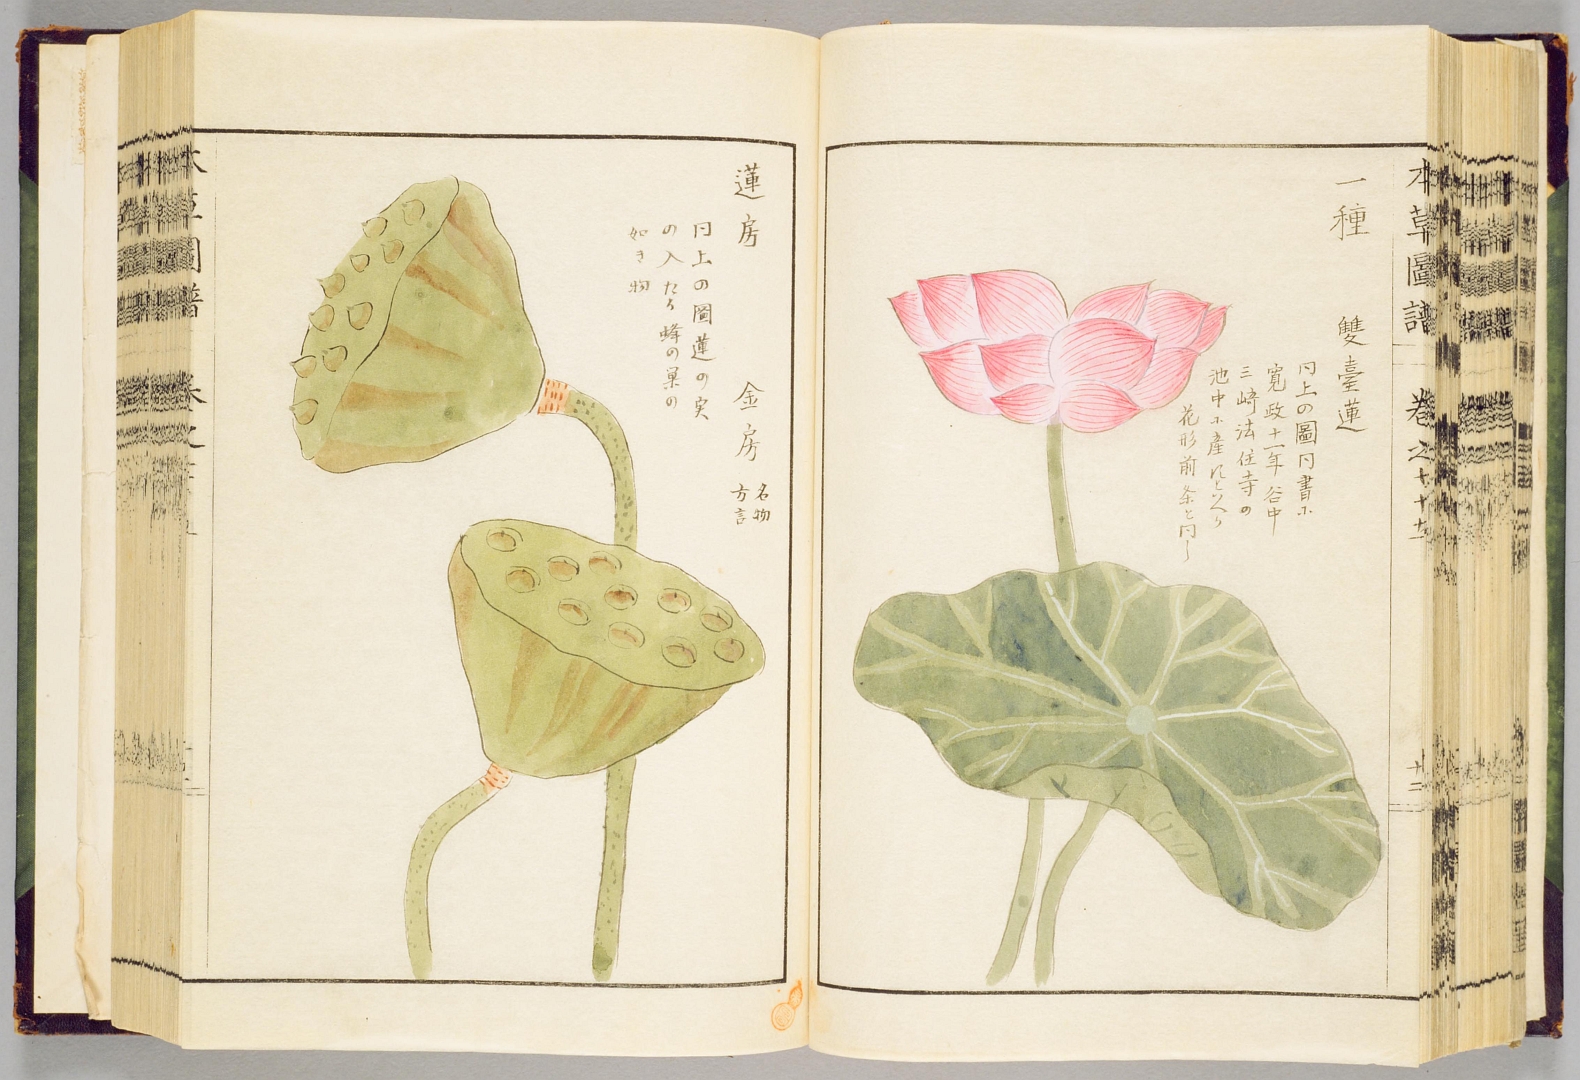 本草圖譜
卷之
十二
一種　雙臺蓮
同上の圖同書ニ
寛政十一年谷中
三崎法住寺の
池中ニ產
花形前条と同し
蓮房　金房
名物
方言
同上の圖蓮の実
の入たる蜂の巣の
如き物